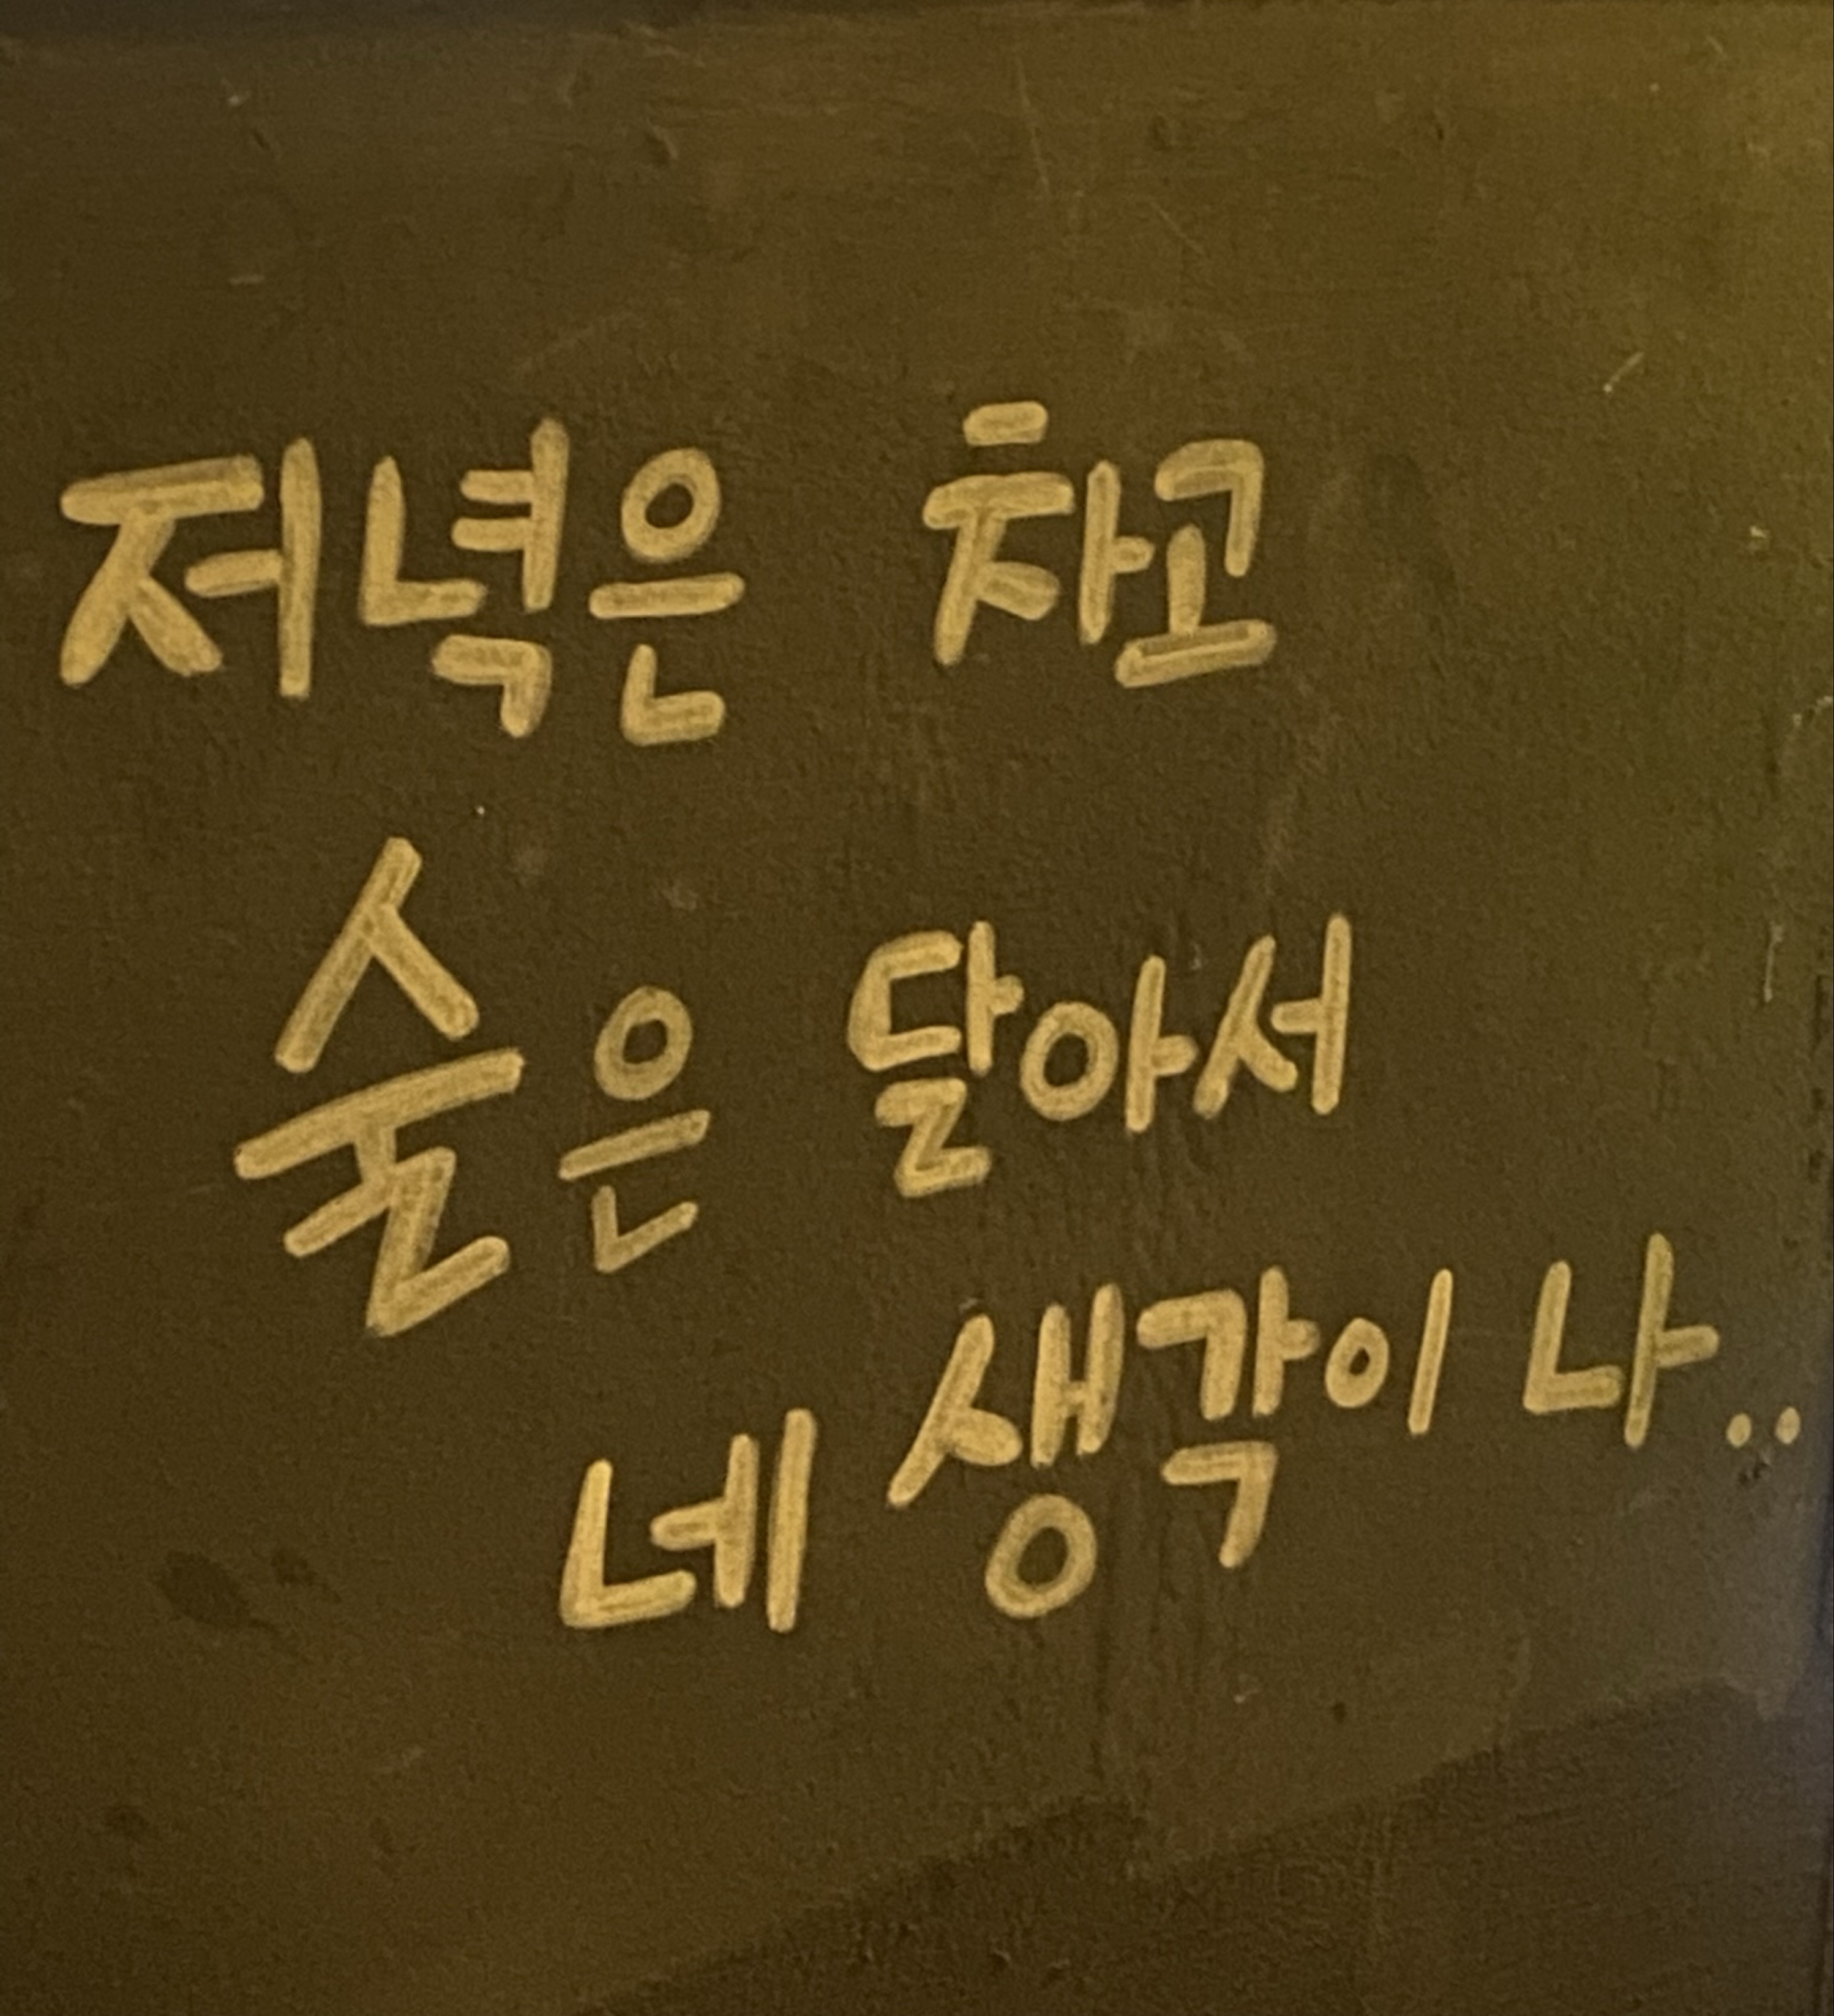 저녁은 차고
술은 달아서
네 생각이 나..